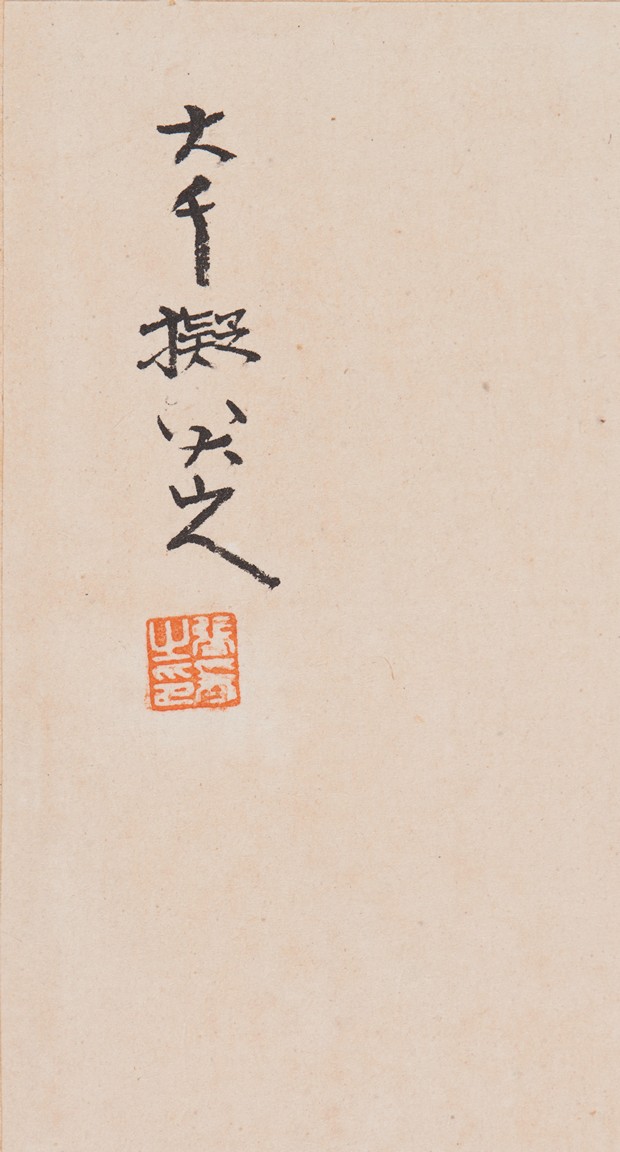 大千擬八大山人
張爰之印